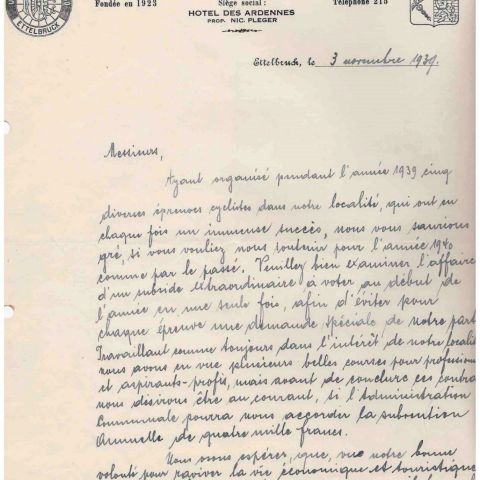 ETTELBRUCK
Fondée en 1923
Siège social :
HOTEL DES ARDENNES
PROP. NIC. PLEGER
Téléphone 215
Ettelbruck, le 3 novembre 1939.
Messieurs,
Ayant organisé pendant l'année 1939 cinq
diverses épreuves cyclistes dans notre localité, qui ont en
chaque fois un immense succès, nous vous saurions
gré, si vous vouliez nous soutenir pour l'année 1940
comme par le passé. Veuillez bien examiner l'affaire
d'un subside extraordinaire à voter au début de
l'année en une seule fois, afin d'éviter pour
chaque épreuve une demande spéciale de notre part
Travaillant comme toujours dans l'intérêt de notre locali
nous avons en vue plusieurs belles courses pour profession
et aspirants-profis, mais avant de conclure ces contra
nous désirons être au courant, si l'Administration
Communale pourra nous accorder la subvention
Annuelle de quatre mille francs.
Nous osons espérer, que, vue notre bonne
volonté pour raviver la vie économique et touristique